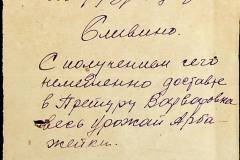 Сливино.
С получением сего
немедленно доставте
в Претуру Варваровка
весь урожай Арба-
жейки.